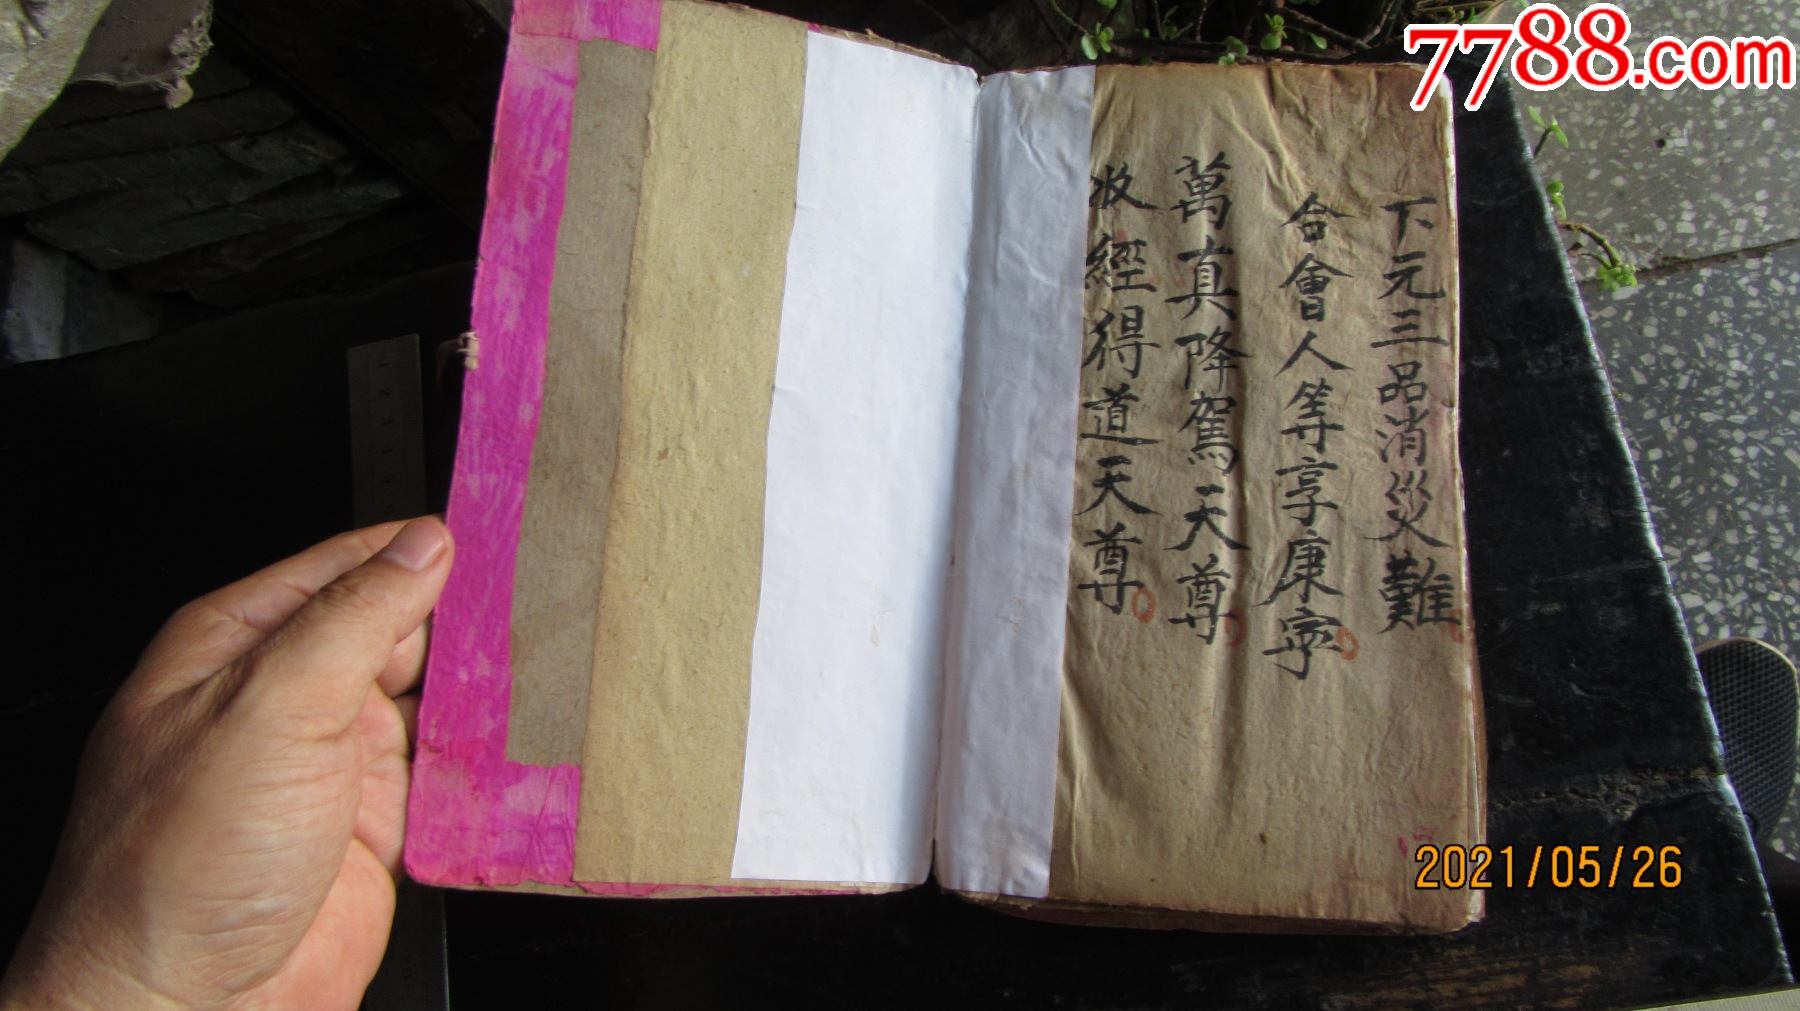 7788.com
下元三品消災難
合會人等享康寧
萬真降駕天尊
收經得道天尊
2021/05/26